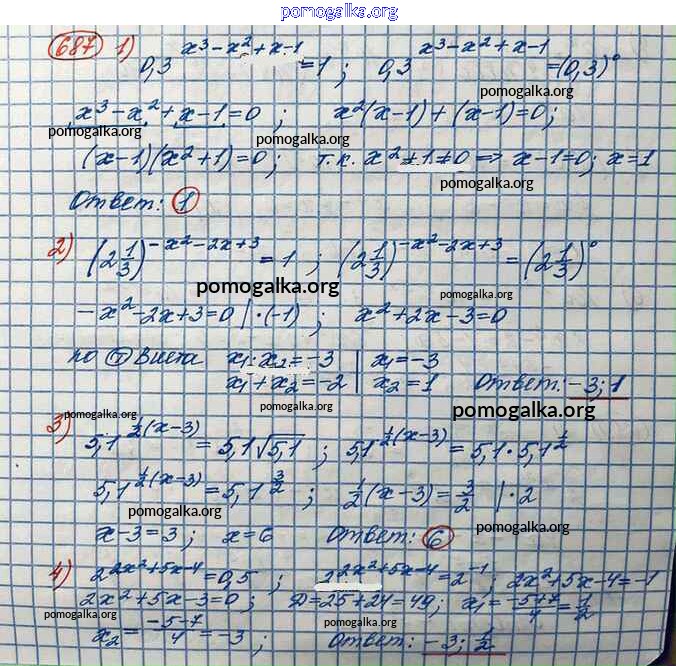 pomogalka.org
687 1) 0,3^(x³-x²+x-1) = 1 ; 0,3^(x³-x²+x-1) = (0,3)⁰
pomogalka.org
x³-x²+x-1=0 ; x²(x-1)+(x-1)=0;
pomogalka.org pomogalka.org
(x-1)(x²+1)=0; т.к. x²+1≠0 => x-1=0; x=1
pomogalka.org
Ответ: 1
2) (2 1/3)^(-x²-2x+3) = 1 ; (2 1/3)^(-x²-2x+3) = (2 1/3)⁰
pomogalka.org pomogalka.org
-x²-2x+3=0 |·(-1) ; x²+2x-3=0
по Т Виета x₁·x₂=-3 | x₁=-3
x₁+x₂=-2 | x₂=1 Ответ: -3; 1
pomogalka.org pomogalka.org pomogalka.org
3) 5,1^(1/2(x-3)) = 5,1√5,1 ; 5,1^(1/2(x-3)) = 5,1·5,1^(1/2)
5,1^(1/2(x-3)) = 5,1^(3/2) ; 1/2(x-3) = 3/2 |·2
pomogalka.org pomogalka.org
x-3=3; x=6 Ответ: 6
4) 2^(2x²+5x-4) = 0,5 ; 2^(2x²+5x-4) = 2⁻¹; 2x²+5x-4=-1
2x²+5x-3=0; D=25+24=49; x₁=(-5+7)/4=1/2
pomogalka.org pomogalka.org
x₂=(-5-7)/4=-3; Ответ: -3; 1/2
pomogalka.org